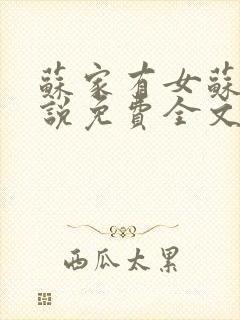 蘇家有女蘇
說免費全文
西瓜太累